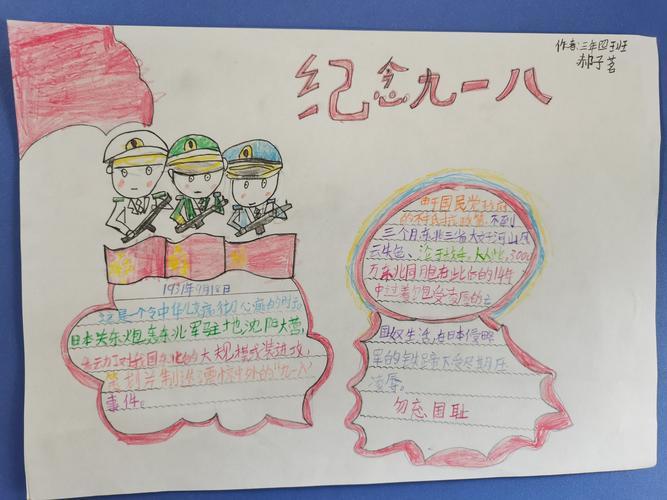 纪念九一八
作者:三年四班
郝子茗
1931年9月18日
这是一个令中华儿女痛彻心扉的时刻
日本关东炮轰东北军驻地沈阳大营,
发动了对我国东北的大规模武装进攻,
策划并制造了震惊中外的“九一八”
事件。
由于国民党政府
的不抵抗政策,不到
三个月,东北三省大好河山风
云失色、沦于敌手,从此,3000
万东北同胞在此后的14年
中过着饱受凌辱的亡
国奴生活,在日本侵略
军的铁蹄下受尽期压
凌辱。
勿忘国耻